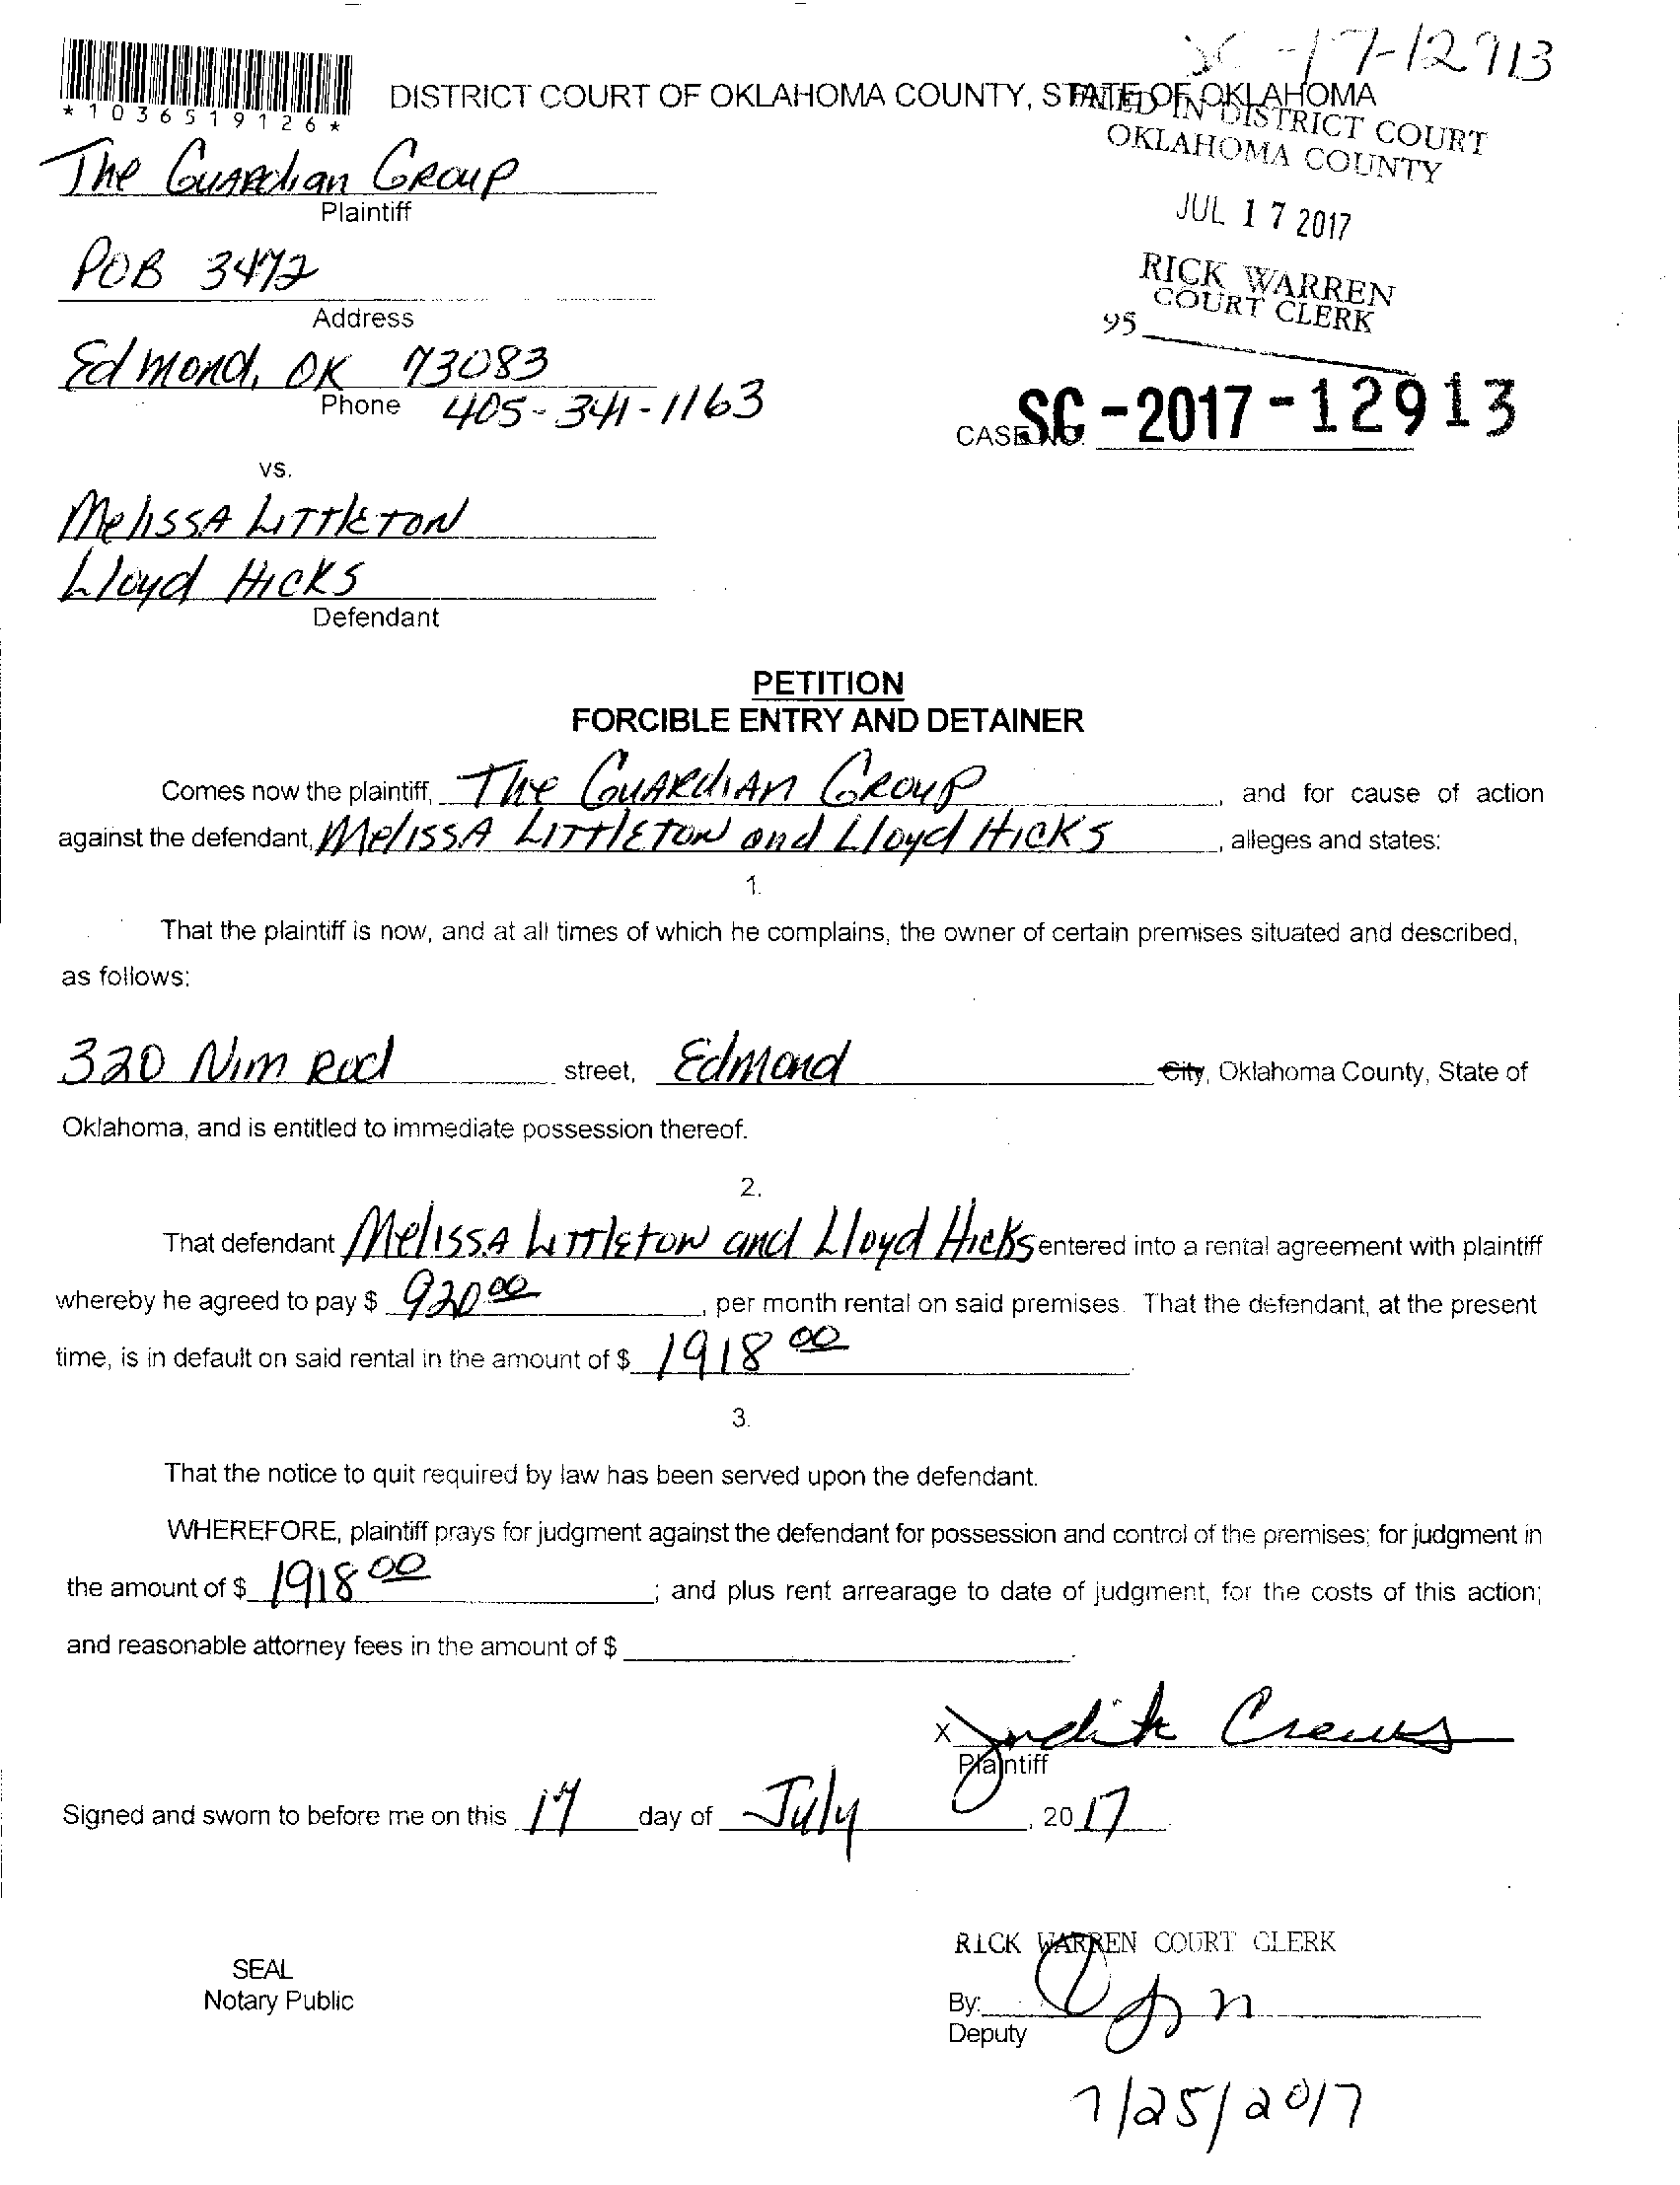 SC-17-12913
*1036519126*
DISTRICT COURT OF OKLAHOMA COUNTY, STATE OF OKLAHOMA
FILED IN DISTRICT COURT
OKLAHOMA COUNTY
The Guardian Group
Plaintiff
JUL 17 2017
POB 3472
Address
RICK WARREN
COURT CLERK
95
Edmond, OK 73083
Phone 405-341-1163
CASE NO. SC-2017-12913
vs.
Melissa Littleton
Lloyd Hicks
Defendant
PETITION
FORCIBLE ENTRY AND DETAINER
Comes now the plaintiff, The Guardian Group, and for cause of action
against the defendant, Melissa Littleton and Lloyd Hicks, alleges and states:
1.
That the plaintiff is now, and at all times of which he complains, the owner of certain premises situated and described,
as follows:
320 Nim Rod street, Edmond City, Oklahoma County, State of
Oklahoma, and is entitled to immediate possession thereof.
2.
That defendant Melissa Littleton and Lloyd Hicks entered into a rental agreement with plaintiff
whereby he agreed to pay $ 920 00, per month rental on said premises. That the defendant, at the present
time, is in default on said rental in the amount of $ 1918 00.
3.
That the notice to quit required by law has been served upon the defendant.
WHEREFORE, plaintiff prays for judgment against the defendant for possession and control of the premises; for judgment in
the amount of $ 1918 00; and plus rent arrearage to date of judgment, for the costs of this action;
and reasonable attorney fees in the amount of $ .
X Judith Crews
Plaintiff
Signed and sworn to before me on this 17 day of July, 2017.
RICK WARREN COURT CLERK
SEAL
Notary Public
By:
Deputy
7/25/2017